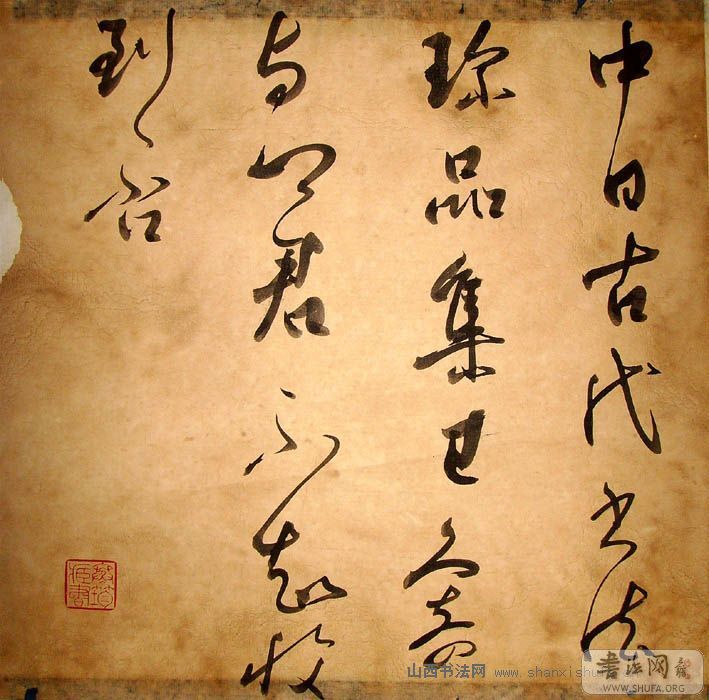 中日古代书法
珍品集已久寄
与君不知收
到否
山西书法网 www.shanxishu
書法网
WWW.SHUFA.ORG